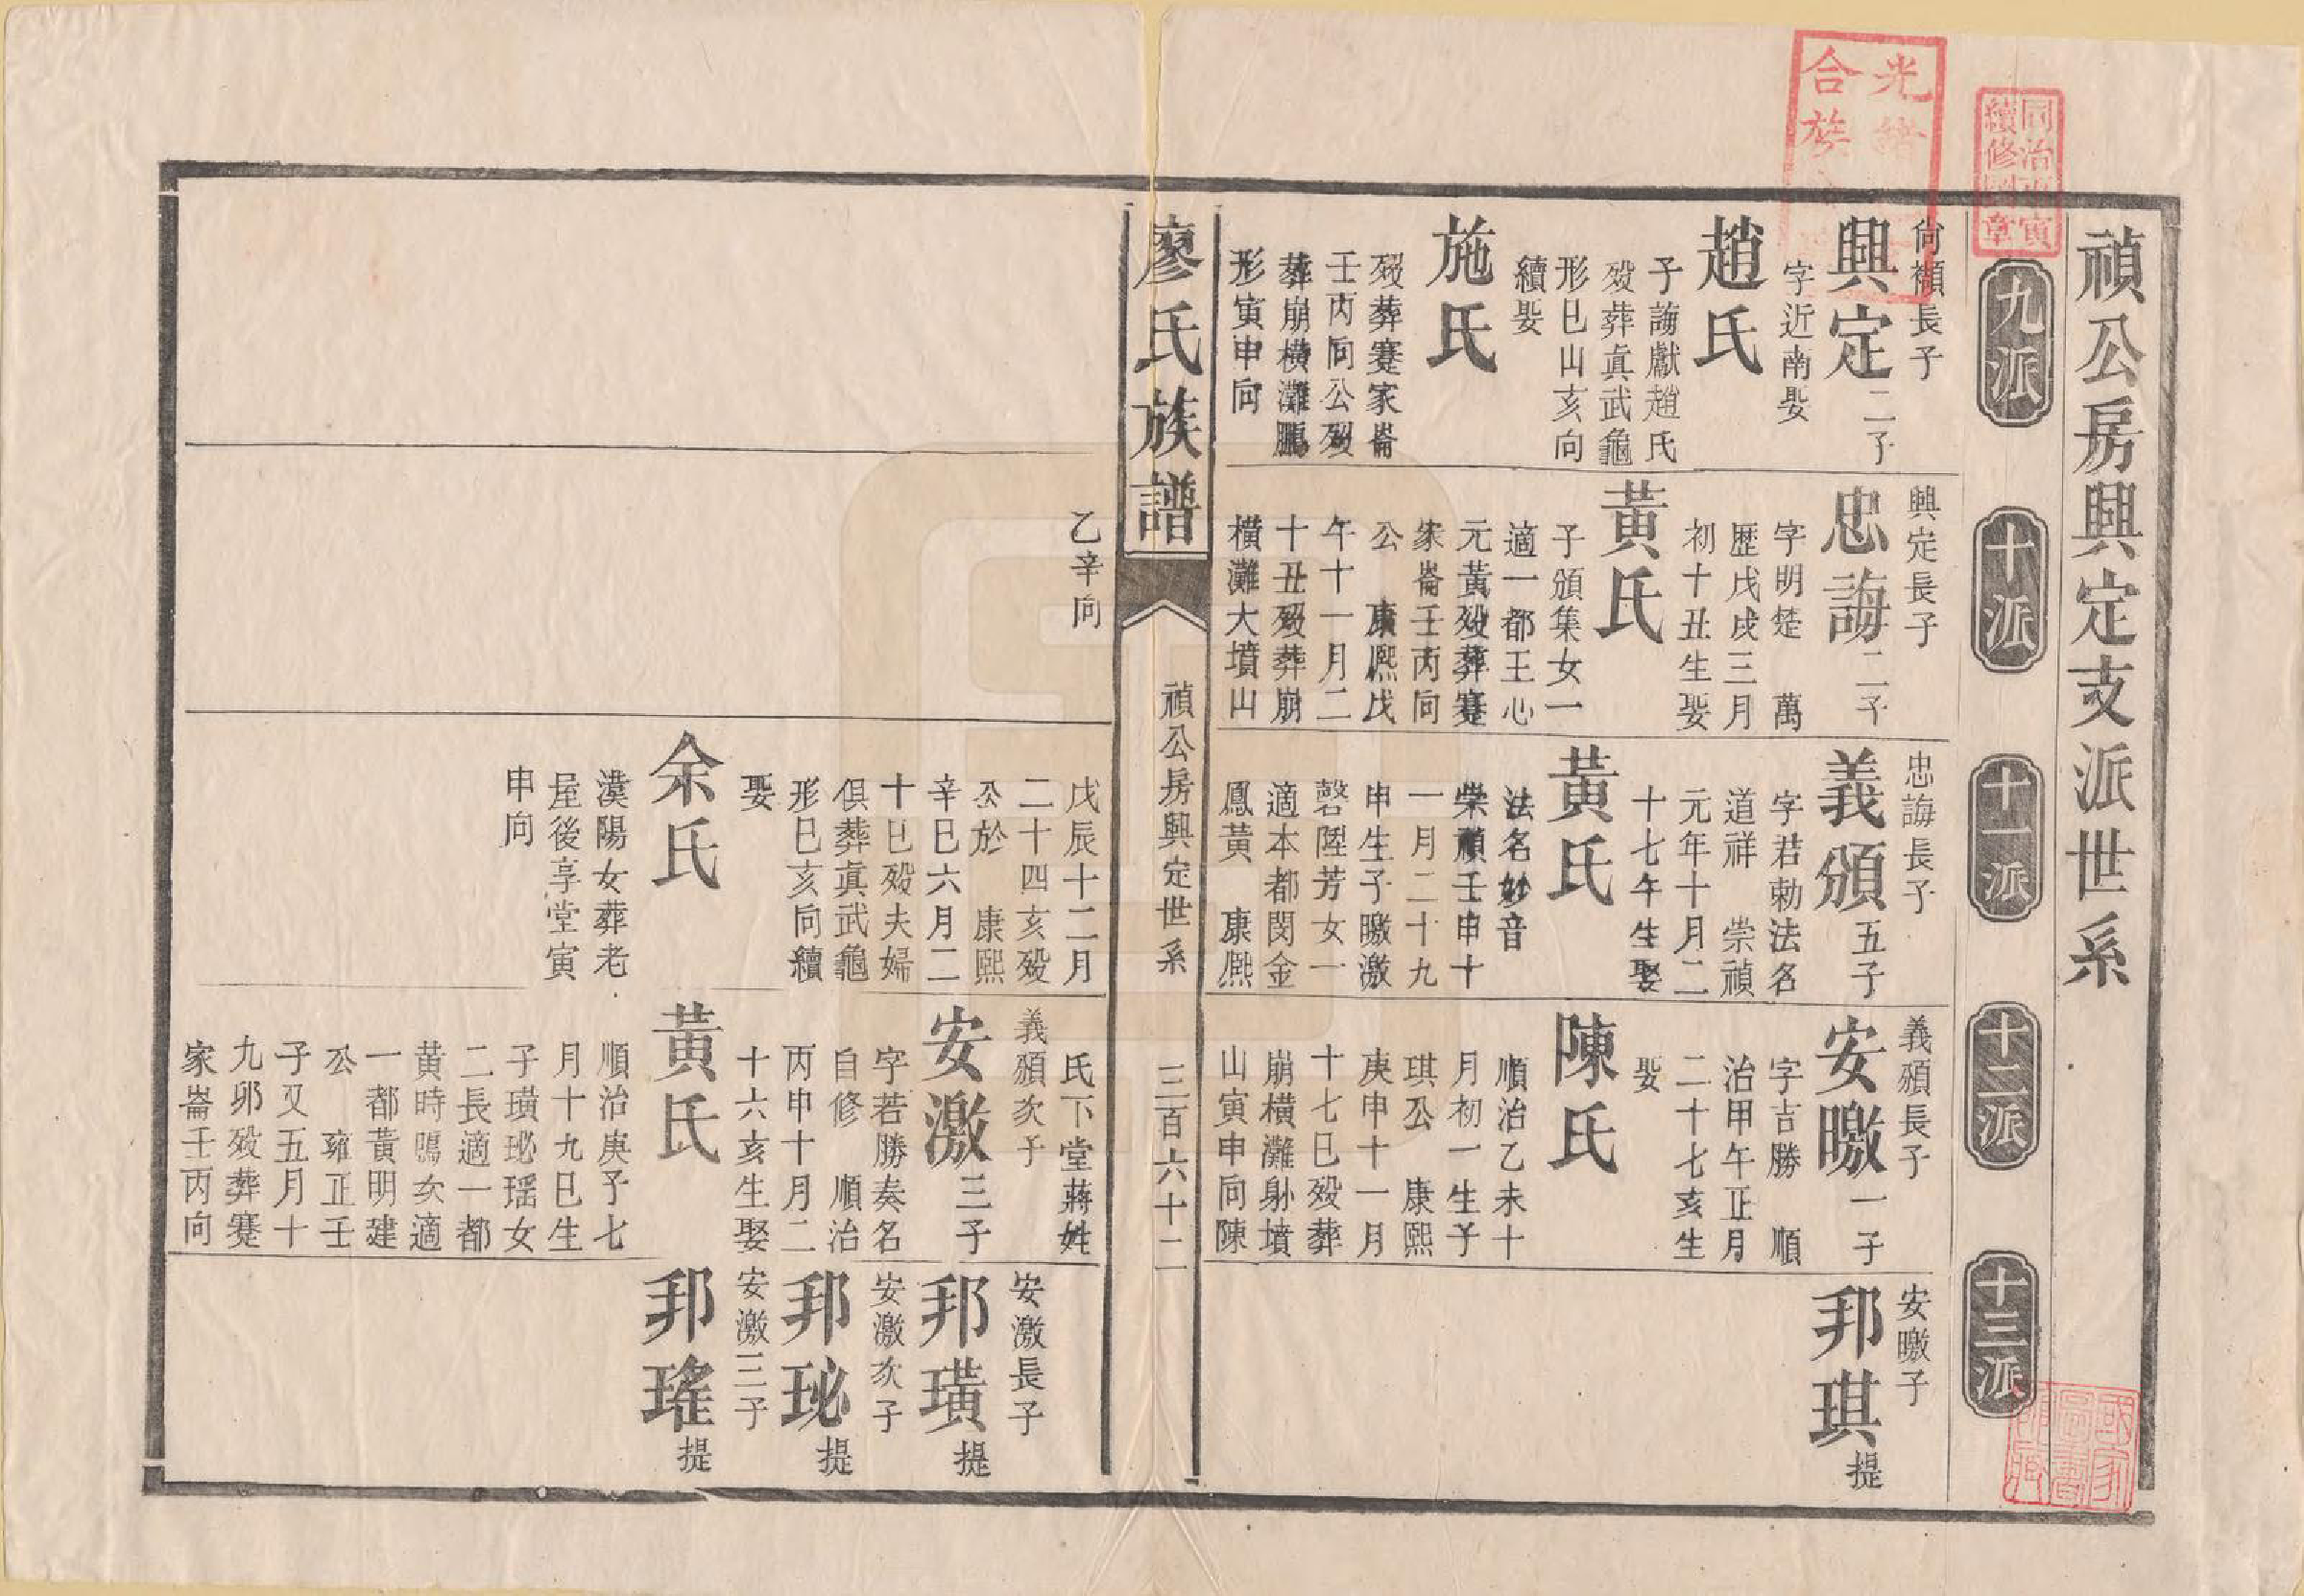 禎公房興定支派世系
同治丙寅
續修圖章
光緒
合族
九派
十派
十一派
十二派
十三派
尙襭長子
興定二子
字近南娶
趙氏
子誨獻趙氏
歿葬眞武龜
形巳山亥向
續娶
施氏
歿葬蹇家崙
壬丙向公歿
葬崩横灘鵬
形寅申向
興定長子
忠誨二子
字明楚 萬
歷戊戌三月
初十丑生娶
黃氏
子頒集女一
適一都王心
元黃歿葬蹇
家崙壬丙向
公 康熙戊
午十一月二
十丑歿葬崩
横灘大墳山
乙辛向
忠誨長子
義頒五子
字若勅法名
道祥 崇禎
元年十月二
十七午生娶
黃氏
法名妙音
崇禎壬申十
一月二十九
申生子暾激
磬陞芳女一
適本都閔金
鳳黃 康熙
戊辰十二月
二十四亥歿
公於 康熙
辛巳六月二
十巳歿夫婦
俱葬眞武龜
形巳亥向續
娶
余氏
漢陽女葬老
屋後享堂寅
申向
義頒長子
安暾一子
字吉勝 順
治甲午正月
二十七亥生
娶
陳氏
順治乙未十
月初一生子
琪公 康熙
庚申十一月
十七巳歿葬
崩横灘躰墳
山寅申向陳
氏下堂蔣姓
義頒次子
安激三子
字若勝奏名
自修 順治
丙申十月二
十六亥生娶
黃氏
順治庚子七
月十九巳生
子璜珌瑶女
二長適一都
黃時鳴次適
一都黃明建
公 雍正壬
子又五月十
九卯歿葬蹇
家崙壬丙向
安暾子
邦琪提
安激長子
邦璜提
安激次子
邦珌提
安激三子
邦瑤提
廖氏族譜
禎公房興定世系
三百六十二
國家
圖書
館藏